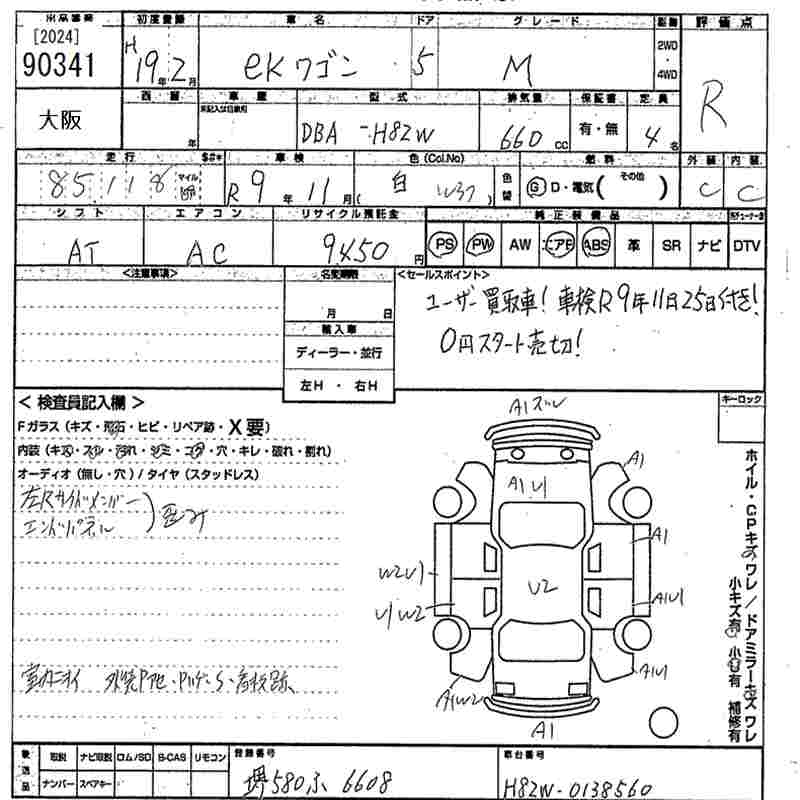 出品番号 初度登録 車名 ドア グレード 駆動 評価点
[2024]
90341 H 19年2月 eKワゴン 5 M 2WD・4WD R
大阪 西暦 年 車歴 未記入は自家用 型式 DBA-H82W 排気量 660cc 保証書 有・無 定員 4名
走行 85118 マイル km $#* 車検 R9年11月 色(Col.No) 白 (W37) 色替 燃料 G D・電気(その他) 外装 C 内装 C
シフト エアコン リサイクル預託金 純正装備品
AT AC 9450円 PS PW AW エアB ABS 革 SR ナビ DTV
<注意事項> 名変期限 <セールスポイント>
月 日
ユーザー買取車!車検R9年11日25日付き!
輸入車
0円スタート売切!
ディーラー・並行
左H・右H
<検査員記入欄> キーロック
Fガラス(キズ・飛石・ヒビ・リペア跡・X要)
内装(キズ・スレ・汚れ・シミ・コゲ・穴・キレ・破れ・割れ)
オーディオ(無し・穴)/タイヤ(スタッドレス)
左Rサイドメンバー
エンドパネル 歪み
A1ズレ
A1
A1U1
A1
W2U1
U2
A1U1
U1W2
A1U1
A1W2
A1
ホイル・CPキズ ワレ/ドアミラーキズ ワレ
小キズ有 小凹有 補修有
後送品 取説 ナビ取説 ロム/SD B-CAS リモコン 登録番号 車台番号
ナンバー スペアキー 堺580ふ6608 H82W-0138560